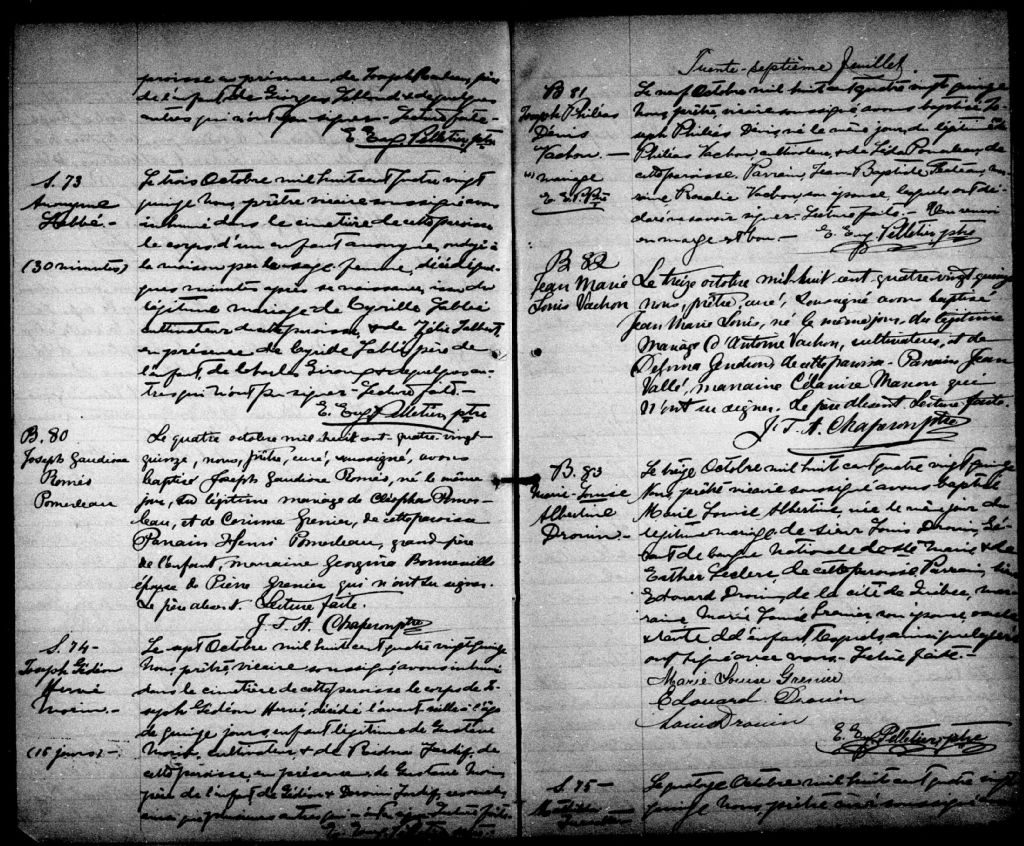 paroisse en présence de Joseph Rouleau, père
de l'enfant, de Georges Leblond & de quelques
autres qui n'ont pu signer. Lecture faite.
E. Eug. Pelletier, ptre
S. 73
Anonyme
Labbé.
(30 minutes)
Le trois Octobre mil huit cent quatre vingt
quinze Nous, prêtre vicaire soussigné avons
inhumé dans le cimetière de cette paroisse
le corps d'un enfant anonyme, ondoyé à
la maison par la sage-femme, décédé quel-
ques minutes après sa naissance, issu du
légitime mariage de Cyrille Labbé
cultivateur de cette paroisse, & de Zélie Talbot,
en présence de Cyrille Labbé père de
l'enfant, de Giroux & de quelques au-
tres qui n'ont pu signer. Lecture faite.
E. Eug. Pelletier, ptre
B. 80
Joseph Gaudiose
Roméo
Pomerleau
Le quatre octobre mil huit cent quatre-vingt
quinze, nous, prêtre, curé, soussigné, avons
baptisé Joseph Gaudiose Roméo, né le même
jour, du légitime mariage de Cléophas Pomer-
leau, et de Corinne Grenier, de cette paroisse
Parrain Henri Pomerleau, grand-père
de l'enfant, marraine Georgina Bonneville
épouse de Pierre Grenier qui n'ont su signer.
Le père absent. Lecture faite.
J. T. A. Chaperon, ptre
S. 74
Joseph Gédéon
Hervé
Morin.
(15 jours)
Le sept Octobre mil huit cent quatre vingt quinze
Nous, prêtre, vicaire soussigné, avons inhumé
dans le cimetière de cette paroisse le corps de Jo-
seph Gédéon Hervé, décédé l'avant veille à l'âge
de quinze jours, enfant légitime de Gustave
Morin, cultivateur & de Tardif, de
cette paroisse, en présence de Gustave Morin
père de l'enfant de Gédéon & Tardif,
ainsi que plusieurs autres qui Lecture faite.
E. Eug. Pelletier, ptre
Trente-septième feuillet.
B 81
Joseph Philias
Denis
Vachon.
mariage
E. E. P. Ptre
Le neuf Octobre mil huit cent quatre vingt quinze
Nous, prêtre, vicaire soussigné, avons baptisé Jo-
seph Philias Denis, né le même jour, du légitime
Philias Vachon, cultivateur, & de Léda de
cette paroisse. Parrain, Jean-Baptiste mar-
raine Rosalie Vachon, son épouse, lesquels ont dé-
claré ne savoir signer. Lecture faite. Un renvoi
en marge est bon. E. Eug. Pelletier, ptre
B 82
Jean Marie
Louis Vachon
Le treize octobre mil-huit cent quatre-vingt quinze
nous, prêtre, curé, soussigné avons baptisé
Jean Marie Louis, né le même jour, du légitime
mariage d'Antoine Vachon, cultivateur, et de
Delvina Gendron de cette paroisse. Parrain Jean
Vallé, marraine Célanire Marcou qui
n'ont su signer. Le père absent. Lecture faite.
J. T. A. Chaperon, ptre
B. 83
Marie-Louise
Albertine
Drouin
Le treize Octobre mil huit cent quatre vingt quinze
Nous, prêtre vicaire soussigné avons baptisé
Marie Louise Albertine, née le même jour du
légitime mariage de sieur Louis Drouin, Gé-
rant de banque Nationale de Ste Marie & de
Esther Leclerc, de cette paroisse. Parrain, sieur
Edouard Drouin, de la cité de Québec, mar-
raine Marie Louise Grenier, son épouse, oncle
& tante de l'enfant, lesquels ainsi que le père
ont signé avec nous. Lecture faite.
Marie Louise Grenier
Edouard Drouin
Louis Drouin
E. Eug. Pelletier, ptre
S. 75
Le quatorze Octobre mil huit cent quatre vingt
quinze Nous, prêtre curé soussigné avons